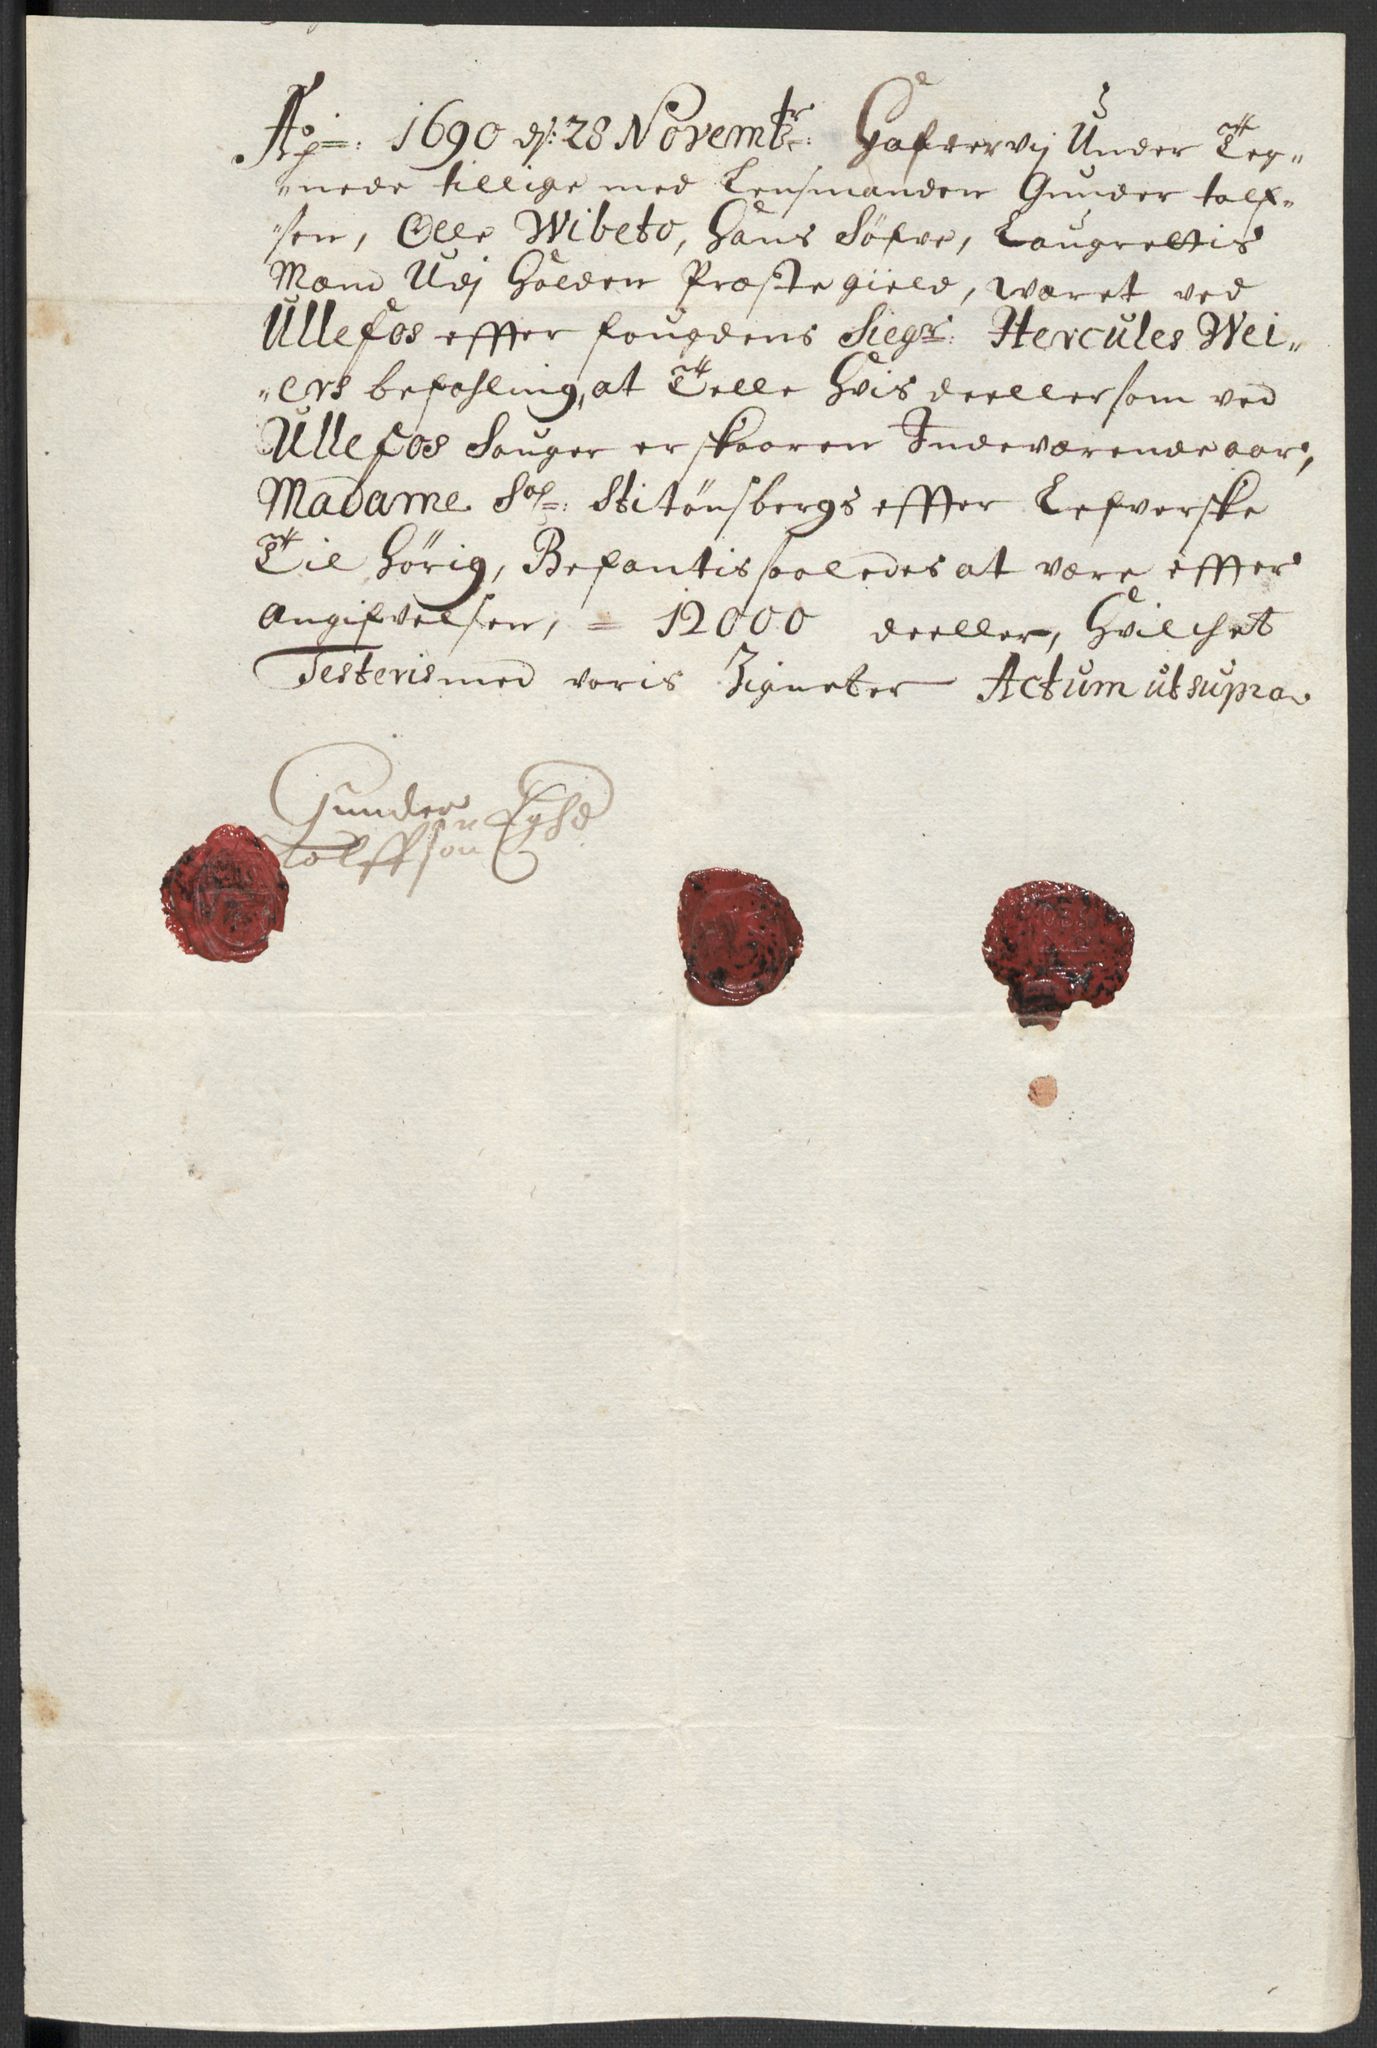 Ao: 1690 d: 28 Novembr: Hafver vij Under Teg„
„nede tillige med Lensmanden Gunder tolf„
„sen, Olle Wibeto, Hans Söfve, Laugrettis
Mænd Udj Holden Præste gield, wæret ved
Ullefos effter fougdens Siegr: Hercules Wei„
„ers befahling, at Telle Hvis deeller som ved
Ullefos Sauger er skaaren Indeværende aar,
Madame Sal: Stitönsbergs effter Lefverske
Til hörig, Befantis saaledes at være effter
angifvelsen, = 12000 deeller, Hvilchet
Testeris med voris Zigneter Actum ut supra
Gunder
Tolffson Eghd